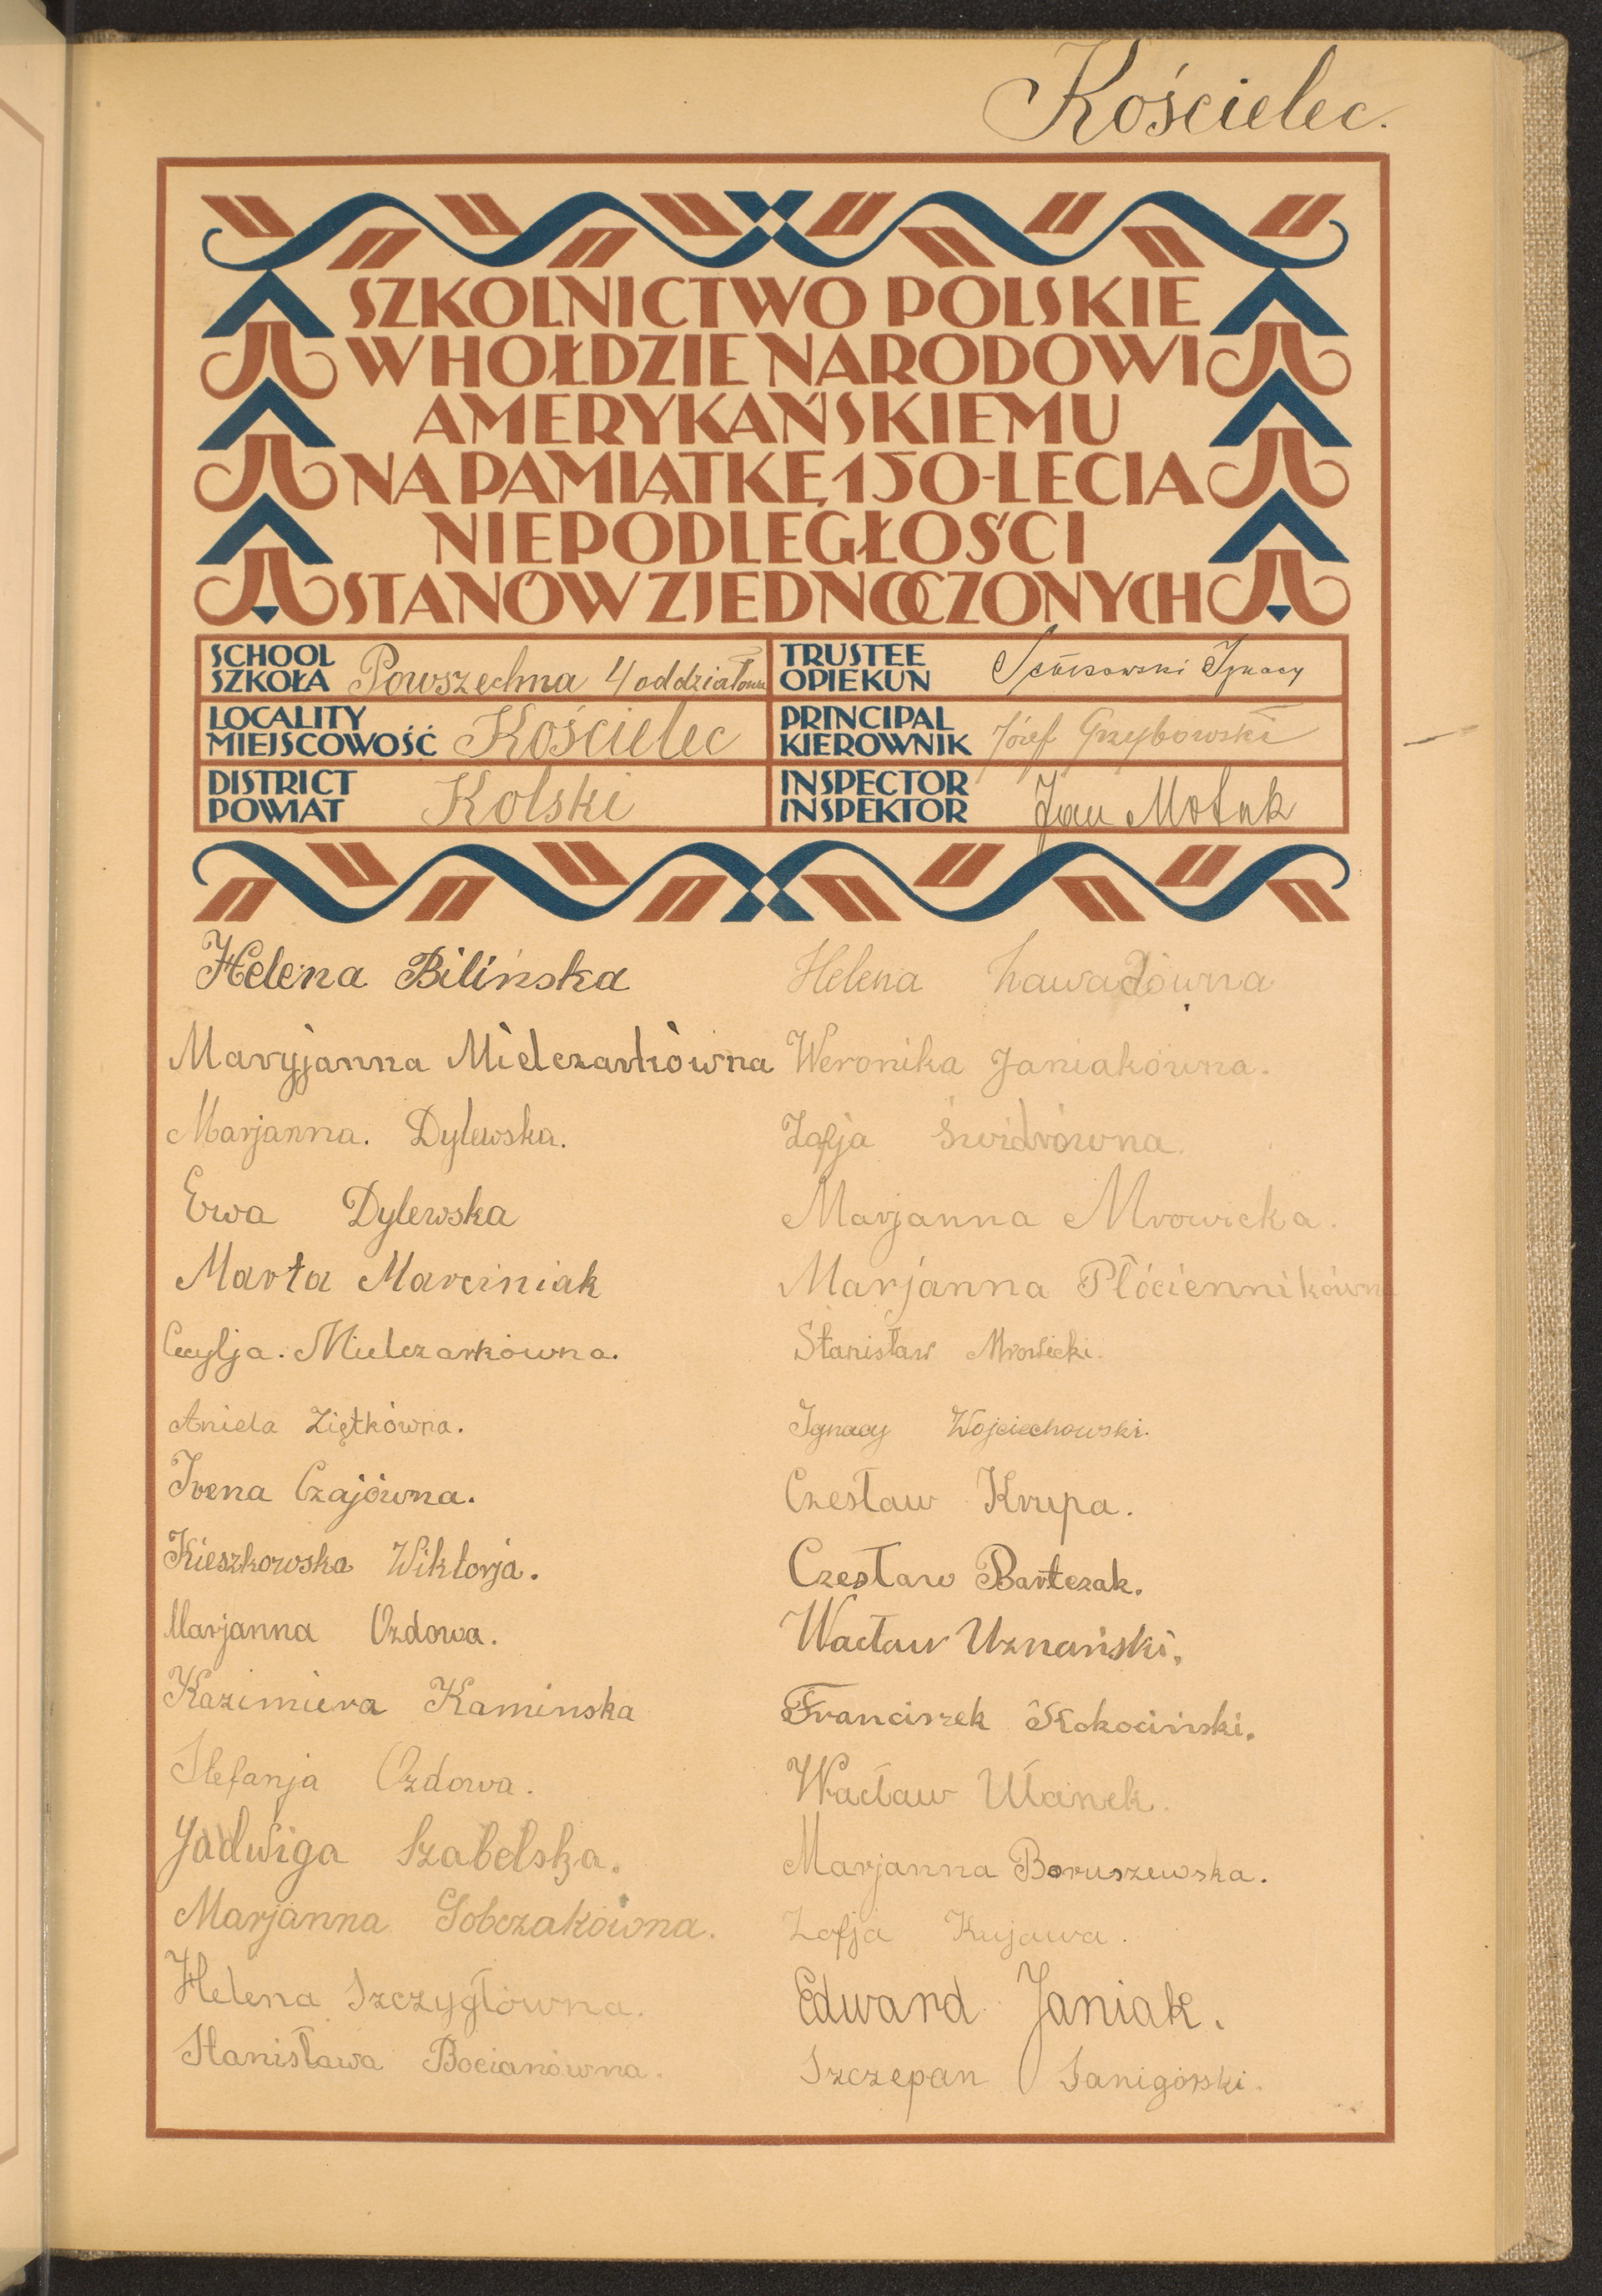 Kościelec.
SZKOLNICTWO POLSKIE
W HOŁDZIE NARODOWI
AMERYKAŃSKIEMU
NA PAMIĄTKĘ 150-LECIA
NIEPODLEGŁOŚCI
STANÓW ZJEDNOCZONYCH
SCHOOL
SZKOŁA Powszechna 4 oddziałowa
TRUSTEE
OPIEKUN Ignacy
LOCALITY
MIEJSCOWOŚĆ Kościelec
PRINCIPAL
KIEROWNIK Józef Grzybowski
DISTRICT
POWIAT Kolski
INSPECTOR
INSPEKTOR Jan
Helena Bilińska
Maryjanna Mielczarkówna
Marjanna. Dylewska.
Ewa Dylewska
Marta Marciniak
Cecylja. Mielczarkówna.
Aniela Ziętkówna.
Irena Czajówna.
Kieszkowska Wiktorja.
Marjanna Ozdowa.
Kazimiera Kaminska
Stefanja Ozdowa.
Jadwiga Szabelska.
Marjanna Sobczakówna.
Helena Szczygłówna.
Stanisława Bocianówna.
Helena
Weronika Janiakówna.
Zofja Świdrówna.
Marjanna Mrowicka.
Marjanna Płóciennikówna
Stanisław Mrowicki.
Ignacy Wojciechowski.
Czesław Krupa.
Czesław Bartczak.
Wacław Uznański.
Franciszek Kokociński.
Wacław
Marjanna Boruszewska.
Zofja Kujawa.
Edward Janiak.
Szczepan Sanigórski.